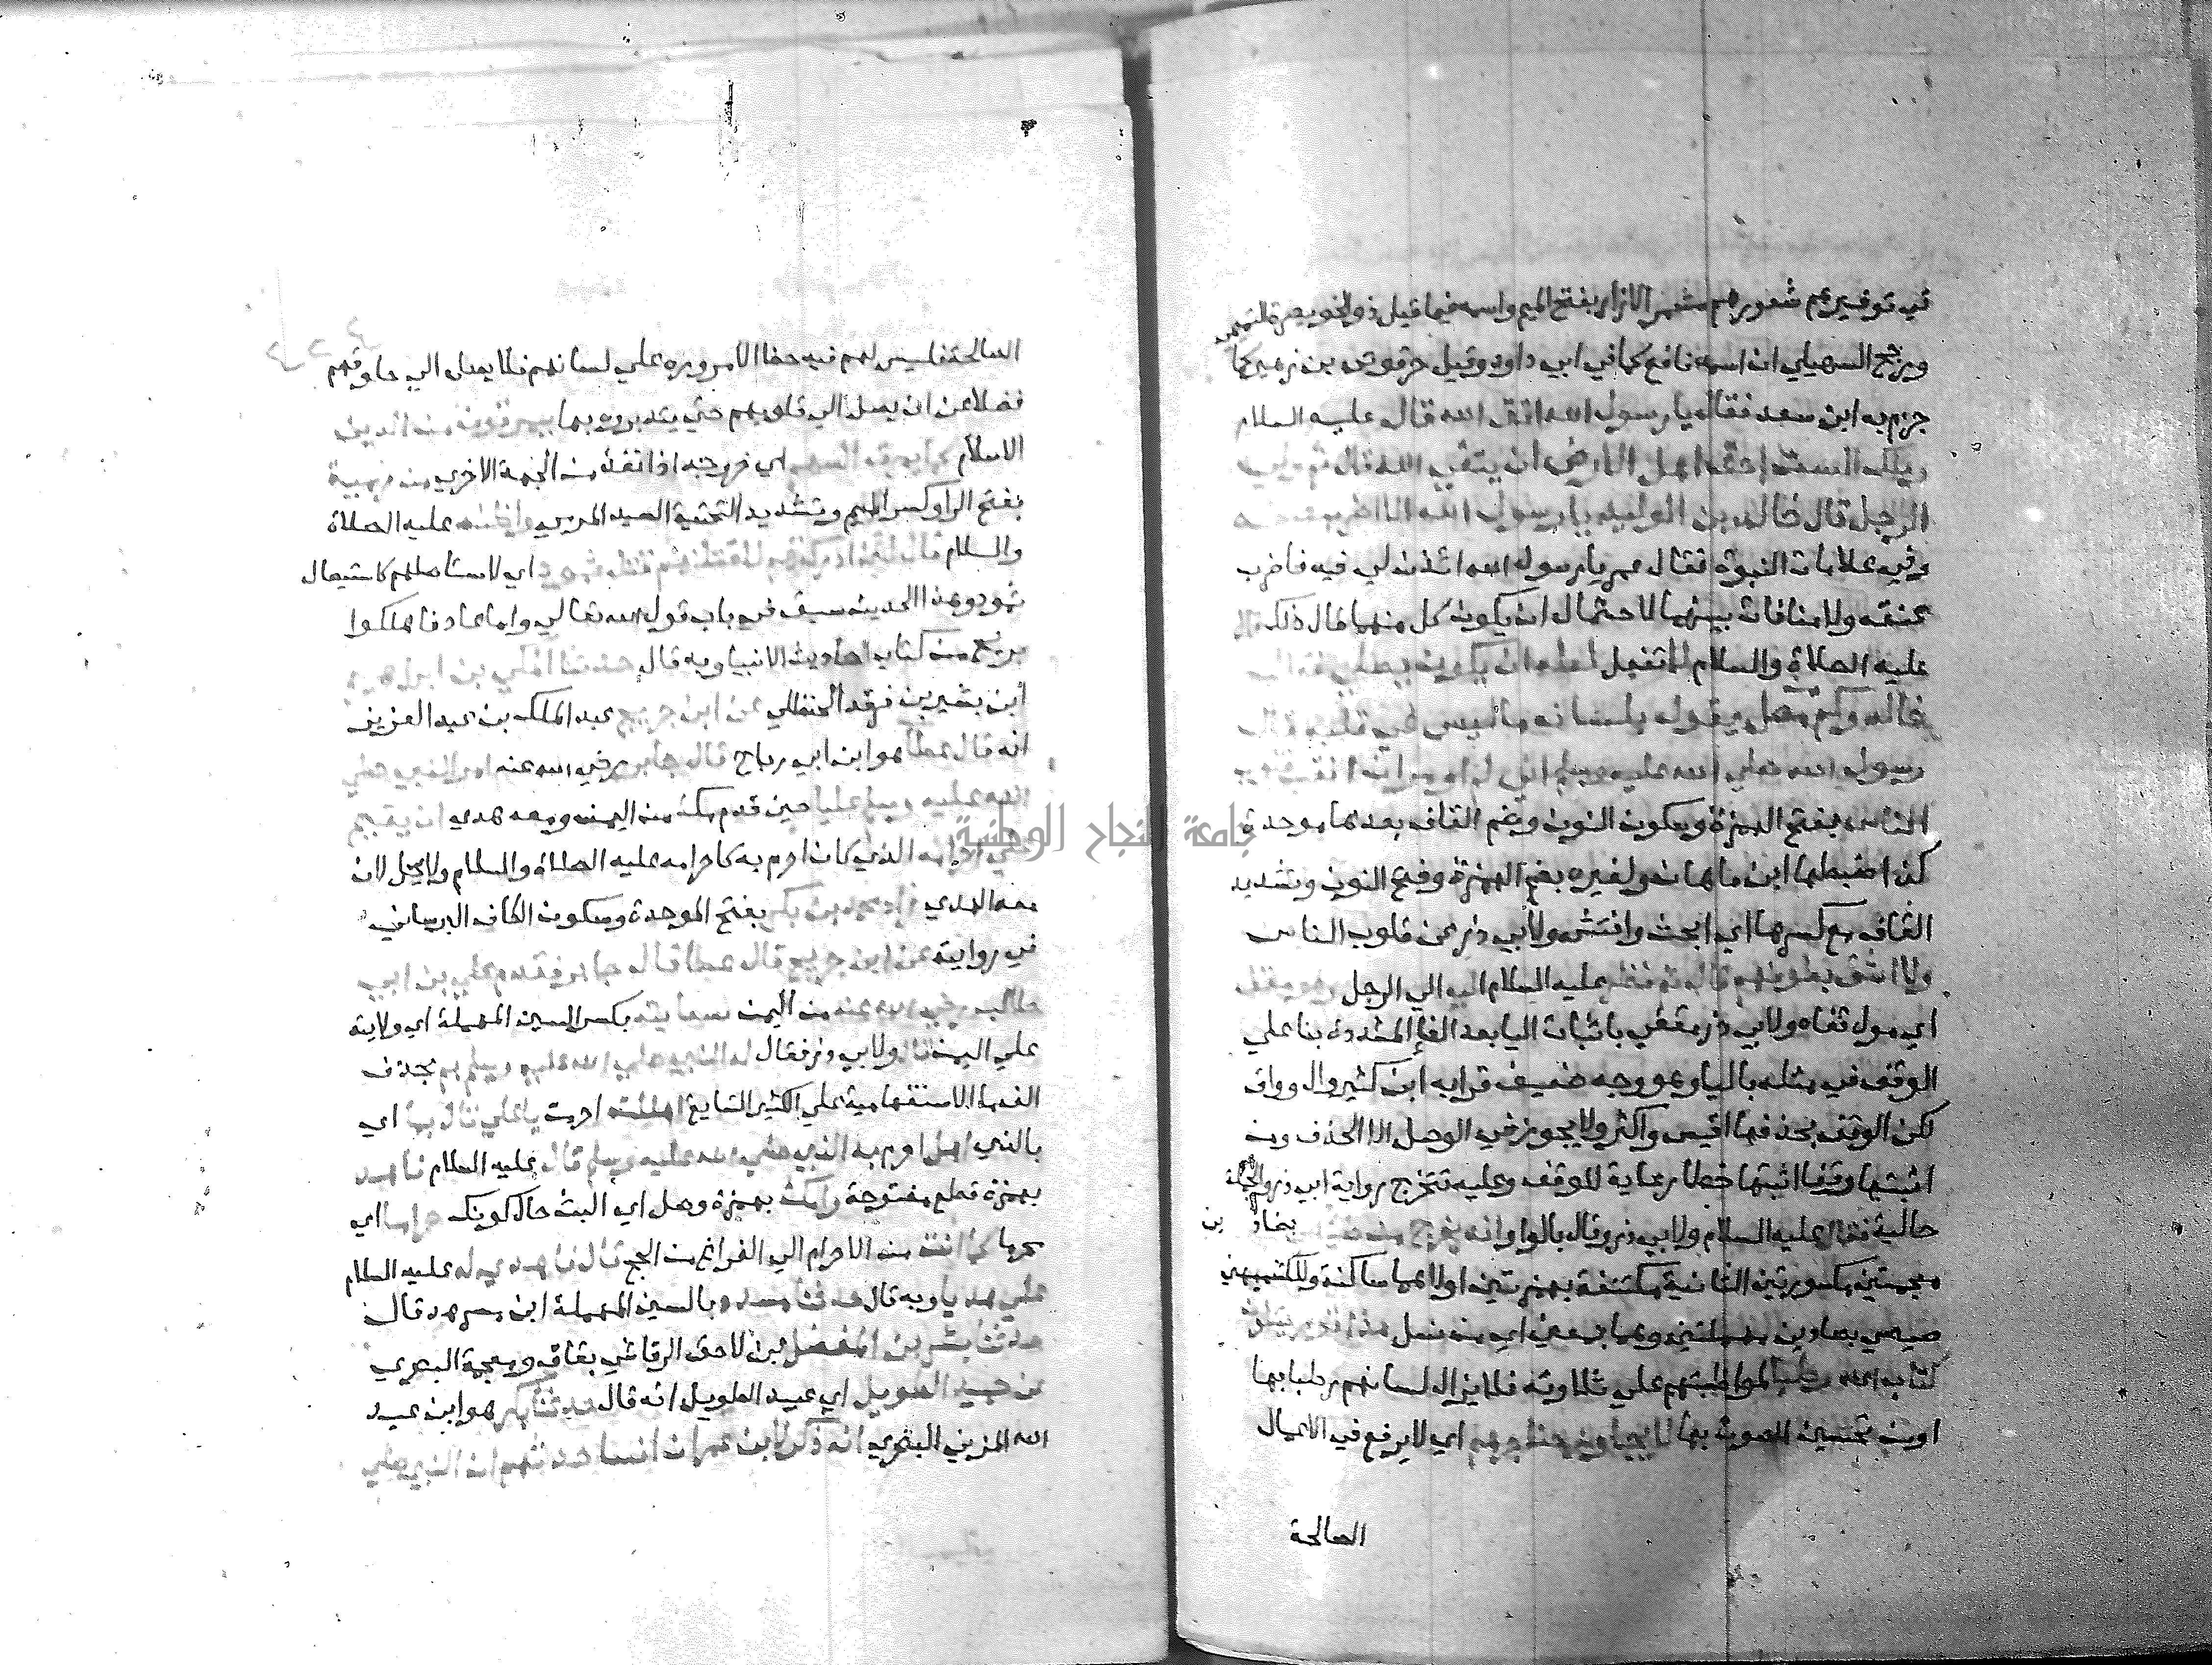 في توفيرهم شعورهم مشمر الازار بفتح الميم واسمه فيما قيل ذو الخويصرة التميمي
ورجح السهيلي ان اسمه نافع كما في ابي داود وقيل حرقوص بن زهير كما
جزم به ابن سعد فقال يا رسول الله اتق الله قال عليه السلام
ويلك الست احق اهل الارض ان يتقي الله قال ثم ولي
الرجل قال خالد بن الوليد يا رسول الله الا اضرب عنقه
وفي علامات النبوة فقال عمر يا رسول الله ائذن لي فيه فاضرب
عنقه ولا منافات بينهما لاحتمال ان يكون كل منهما قال ذلك قال
عليه الصلاة والسلام لا تفعل لعله ان يكون يصلي فقال
خالد وكم مصل يقول بلسانه ما ليس في قلبه قال
رسول الله صلى الله عليه وسلم اني لم اومر ان انقب قلوب
الناس بفتح الهمزة وسكون النون وضم القاف بعدها موحدة
كذا ضبطها ابن ماهان ولغيره بضم الهمزة وفتح النون وتشديد
القاف مع كسرها اي ابحث وافتش ولابي ذر عن قلوب الناس
ولا اشق بطونهم قال ثم نظر عليه السلام اليه الي الرجل وهو مقف
اي مول قفاه ولابي ذر مقفي باثبات اليا بعد الفا المشددة بنا علي
الوقف في مثله باليا وهو وجه ضعيف قرا به ابن كثير وال وواق
لكن الوقف بحذفها اقيس واكثر ولا يجوز في الوصل الا الحذف ومن
اثبتها وقفا اثبتها خطا رعاية للوقف وعليه تتخرج رواية ابي ذر والجملة
حالية فقال عليه السلام ولابي ذر وقال بالواو انه يخرج من ضئضئ بضادين
معجمتين مكسورتين الثانية مكتنفة بهمزتين اولاهما ساكنة وللكشميهني
صيصي بصادين مهملتين وهما بمعني اي من نسل هذا قوم يتلون
كتاب الله رطبا لمواظبتهم علي تلاوته فلا يزال لسانهم رطبا بها
او من تحسين الصوت بها لا يجاوز حناجرهم اي لا يرفع في الاعمال
الصالحة
الصالحة فليس لهم فيه حظ الا مروره علي لسانهم فلا يصل الي حلوقهم
فضلا عن ان يصل الي قلوبهم حتي يتدبروه بها يمرقون من الدين
الاسلام كما يمرق السهم اي خروجه اذا نفذ من الجهة الاخري من الرمية
بفتح الرا وكسر الميم وتشديد التحتية الصيد المرمي واظنه عليه الصلاة
والسلام قال لئن ادركتهم لاقتلنهم قتل ثمود اي لاستاصلهم كاستيصال
ثمود وهذا الحديث سبق في باب قول الله تعالي واما عاد فاهلكوا
بريح من كتاب احاديث الانبيا وبه قال حدثنا المكي بن ابراهيم
ابن بشير بن فرقد الحنظلي عن ابن جريج عبد الملك بن عبد العزيز
انه قال عطا هو ابن ابي رباح قال جابر رضي الله عنه امر النبي صلي
الله عليه وسلم عليا حين قدم مكة من اليمن ومعه هدي ان يقيم
علي احرامه الذي كان احرم به كاحرامه عليه الصلاة والسلام ولا يحل لان
معه الهدي زاد محمد بن بكر بفتح الموحدة وسكون الكاف البرساني
في روايته عن ابن جريج قال عطا قال جابر فقدم علي بن ابي
طالب رضي الله عنه من اليمن بسعايته بكسر السين المهملة اي ولايته
علي اليمن قال ولابي ذر فقال له النبي صلي الله عليه وسلم بم بحذف
الف ما الاستفهامية علي الكثير الشايع اهللت احرمت يا علي قال بما اي
بالذي اهل احرم به النبي صلي الله عليه وسلم قال عليه السلام فاهد
بهمزة قطع مفتوحة وامكث بهمزة وصل اي البث حال كونك حراما اي
محرما كما انت من الاحرام الي الفراغ من الحج قال واهدي له عليه السلام
علي هديا وبه قال حدثنا مسدد بالسين المهملة ابن مسرهد قال
حدثنا بشر بن المفضل بن لاحق الرقاشي بقاف ومعجمة البصري
عن حميد الطويل اي عبيد الطويل انه قال حدثنا بكر هو ابن عبيد
الله المزني البصري انه ذكر لابن عمر ان انسا حدثهم ان النبي صلي
جامعة النجاح الوطنية